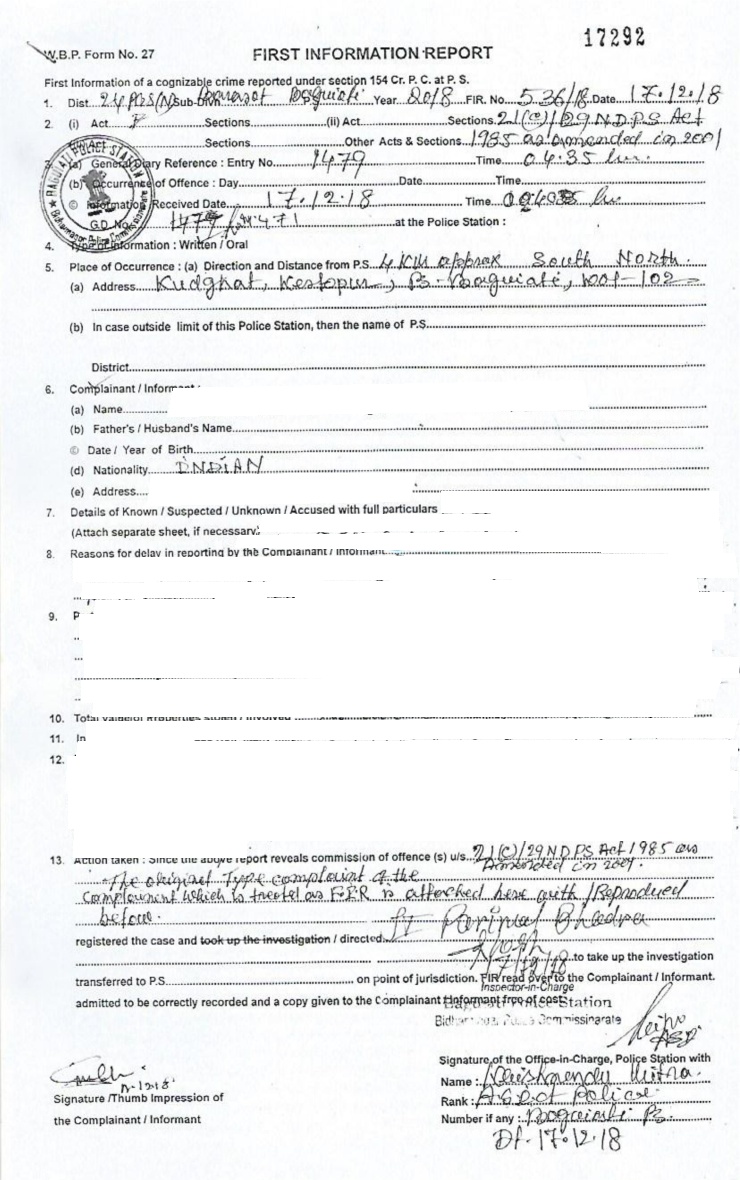 17292
W.B.P. Form No. 27
FIRST INFORMATION REPORT
First Information of a cognizable crime reported under section 154 Cr. P. C. at P. S.
1. Dist. 24 PRS(N) Sub-Divn. Barasat Baguiati Year 2018 FIR. No. 536/18 Date 17.12.18
2. (i) Act Sections (ii) Act Sections 21(C)/29 N.D.P.S Act
Sections Other Acts & Sections 1985 as amended in 2001
3. (a) General Diary Reference : Entry No. 1479 Time 04.35 hrs.
(b) Occurrence of Offence : Day Date Time
© Information Received Date 17.12.18 Time
G.D. No. at the Police Station :
BAGUIATI POLICE STATION
Bidhannagar Police Commissionerate
4. Type of Information : Written / Oral
5. Place of Occurrence : (a) Direction and Distance from P.S. 4 KM approx South North.
(a) Address Kudghat, Kestopur, PS- Baguiati, Kol-102
(b) In case outside limit of this Police Station, then the name of P.S.
District
6. Complainant / Informant
(a) Name
(b) Father's / Husband's Name
© Date / Year of Birth
(d) Nationality INDIAN
(e) Address
7. Details of Known / Suspected / Unknown / Accused with full particulars
(Attach separate sheet, if necessary
8. Reasons for delay in reporting by the Complainant / Informant
9. P
10. Total value of Properties stolen / Involved
11. In
12.
13. Action taken : Since the above report reveals commission of offence (s) u/s. 21(C)/29 NDPS Act 1985 as
Amended in 2001.
The original Type complaint of the
Complainant which is treated as FIR is attached here with /Reproduced
before.
registered the case and took up the investigation / directed
to take up the investigation
transferred to P.S. on point of jurisdiction. FIR read over to the Complainant / Informant.
Inspector-in-Charge
admitted to be correctly recorded and a copy given to the Complainant Informant free of cost.
Baguiati Police Station
Bidhannagar Police Commissinarate
ASI
Signature of the Office-in-Charge, Police Station with
Name : Mitra.
Signature /Thumb Impression of
Rank : A.S.I. of Police.
the Complainant / Informant
Number if any : Baguiati PS.
Dt- 17.12.18